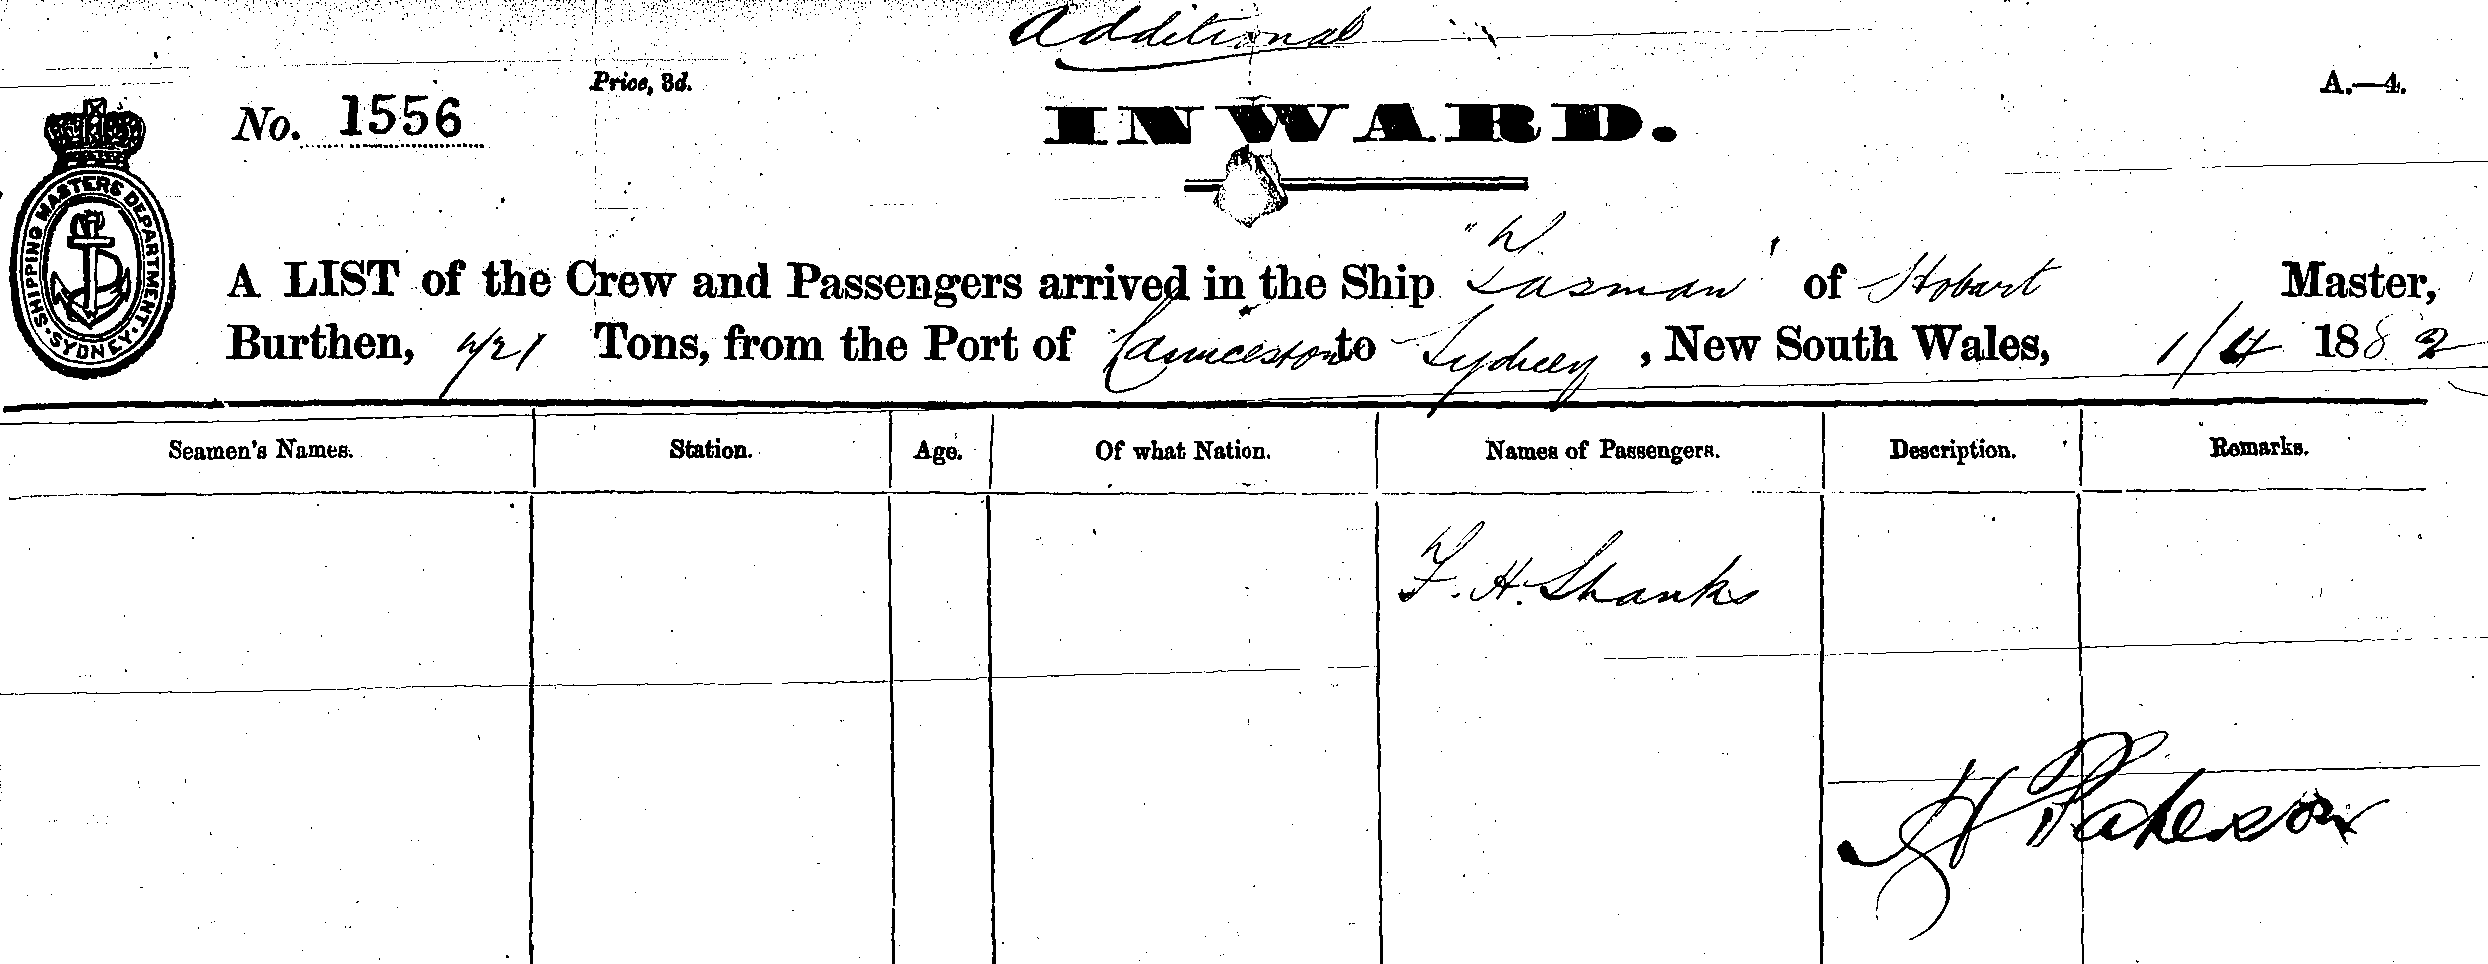 Additional
Price, 3d.
A.—4.
No. 1556
INWARD.
SHIPPING MASTERS DEPARTMENT. SYDNEY.
A LIST of the Crew and Passengers arrived in the Ship "Tasman" of Hobart Master,
Burthen, 421 Tons, from the Port of Launceston to Sydney, New South Wales, 1/4 1882
Seamen's Names. Station. Age. Of what Nation. Names of Passengers. Description. Remarks.
F. H. Shanks
Paterson